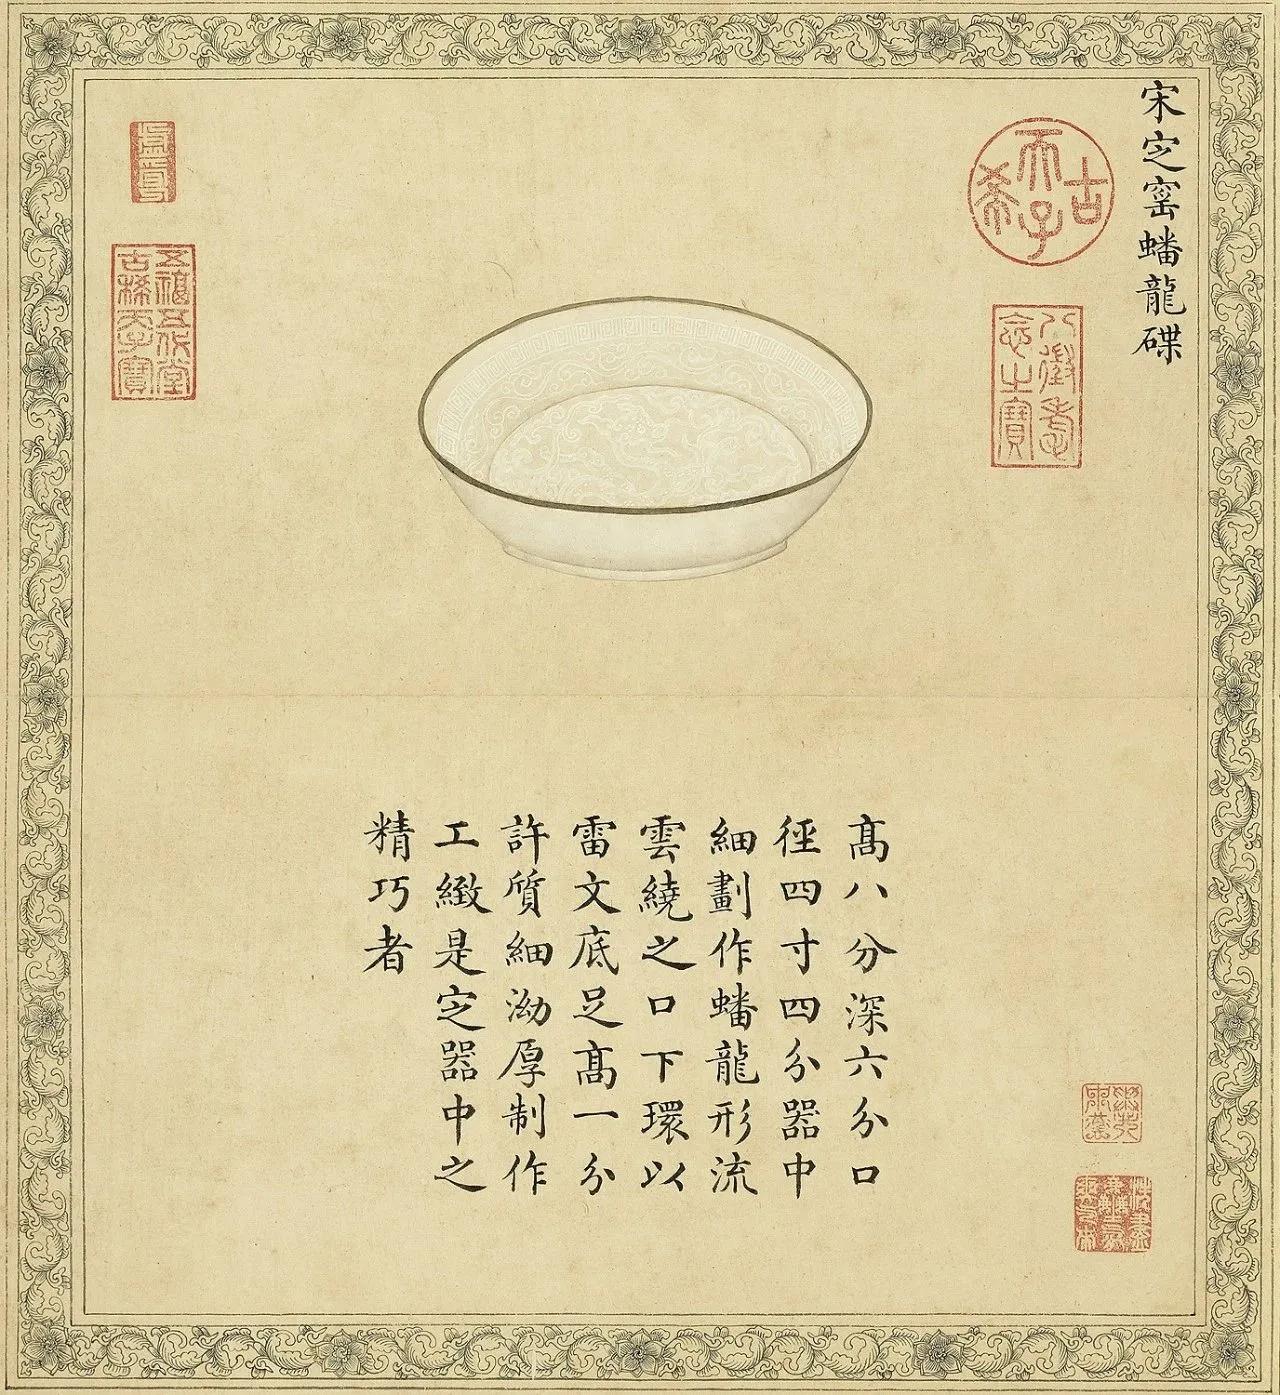 宋㝎窰蟠龍碟
古希天子
八徵耄
念之寶
五福五代堂
古稀天子寶
髙八分深六分口
徑四寸四分器中
細劃作蟠龍形流
雲繞之口下環以
雷文底足髙一分
許質細泑厚制作
工緻是㝎器中之
精巧者